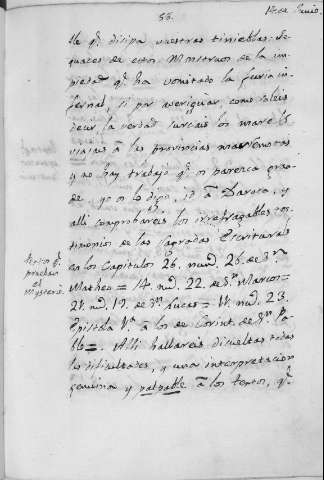 55.
14 de Junio.
te q.e disipa vuestras tinieblas. Se
quaces de estos Monstruos de la im
piedad q.e ha vomitado la furia in
fernal, si por averiguar, como
la verdad surcais los mares
viajais à las provincias mas remotas
y no hay trabajo q.e os parezca gran
de yo os lo digo, id à Daroca, y
alli comprobareis los irrefragables tes
timonios de las sagradas Escrituras
en los Capitulos 26. num. 26. de S.n
Matheo = 14. nu. 22. de S.n Marcos =
22. nu. 19. de S.n Lucas = 11. num. 23.
Epistola 1.a à los de Corint. de S.n Pa
blo =. Alli hallareis disueltas todas
las dificultades, y una interpretacion
genuina y palpable à los textos, q.e
textos q.e
prueban
el
Mysterio.